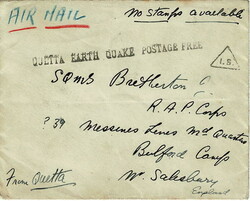 AIR MAIL
No stamps available
QUETTA EARTH QUAKE POSTAGE FREE
I.S.
SQMS Bretherton C.
R.A.P. Corps
? 39 Messines Lines Md Quarters
Bulford Camp
Nr. Salesbury
England
From Quetta